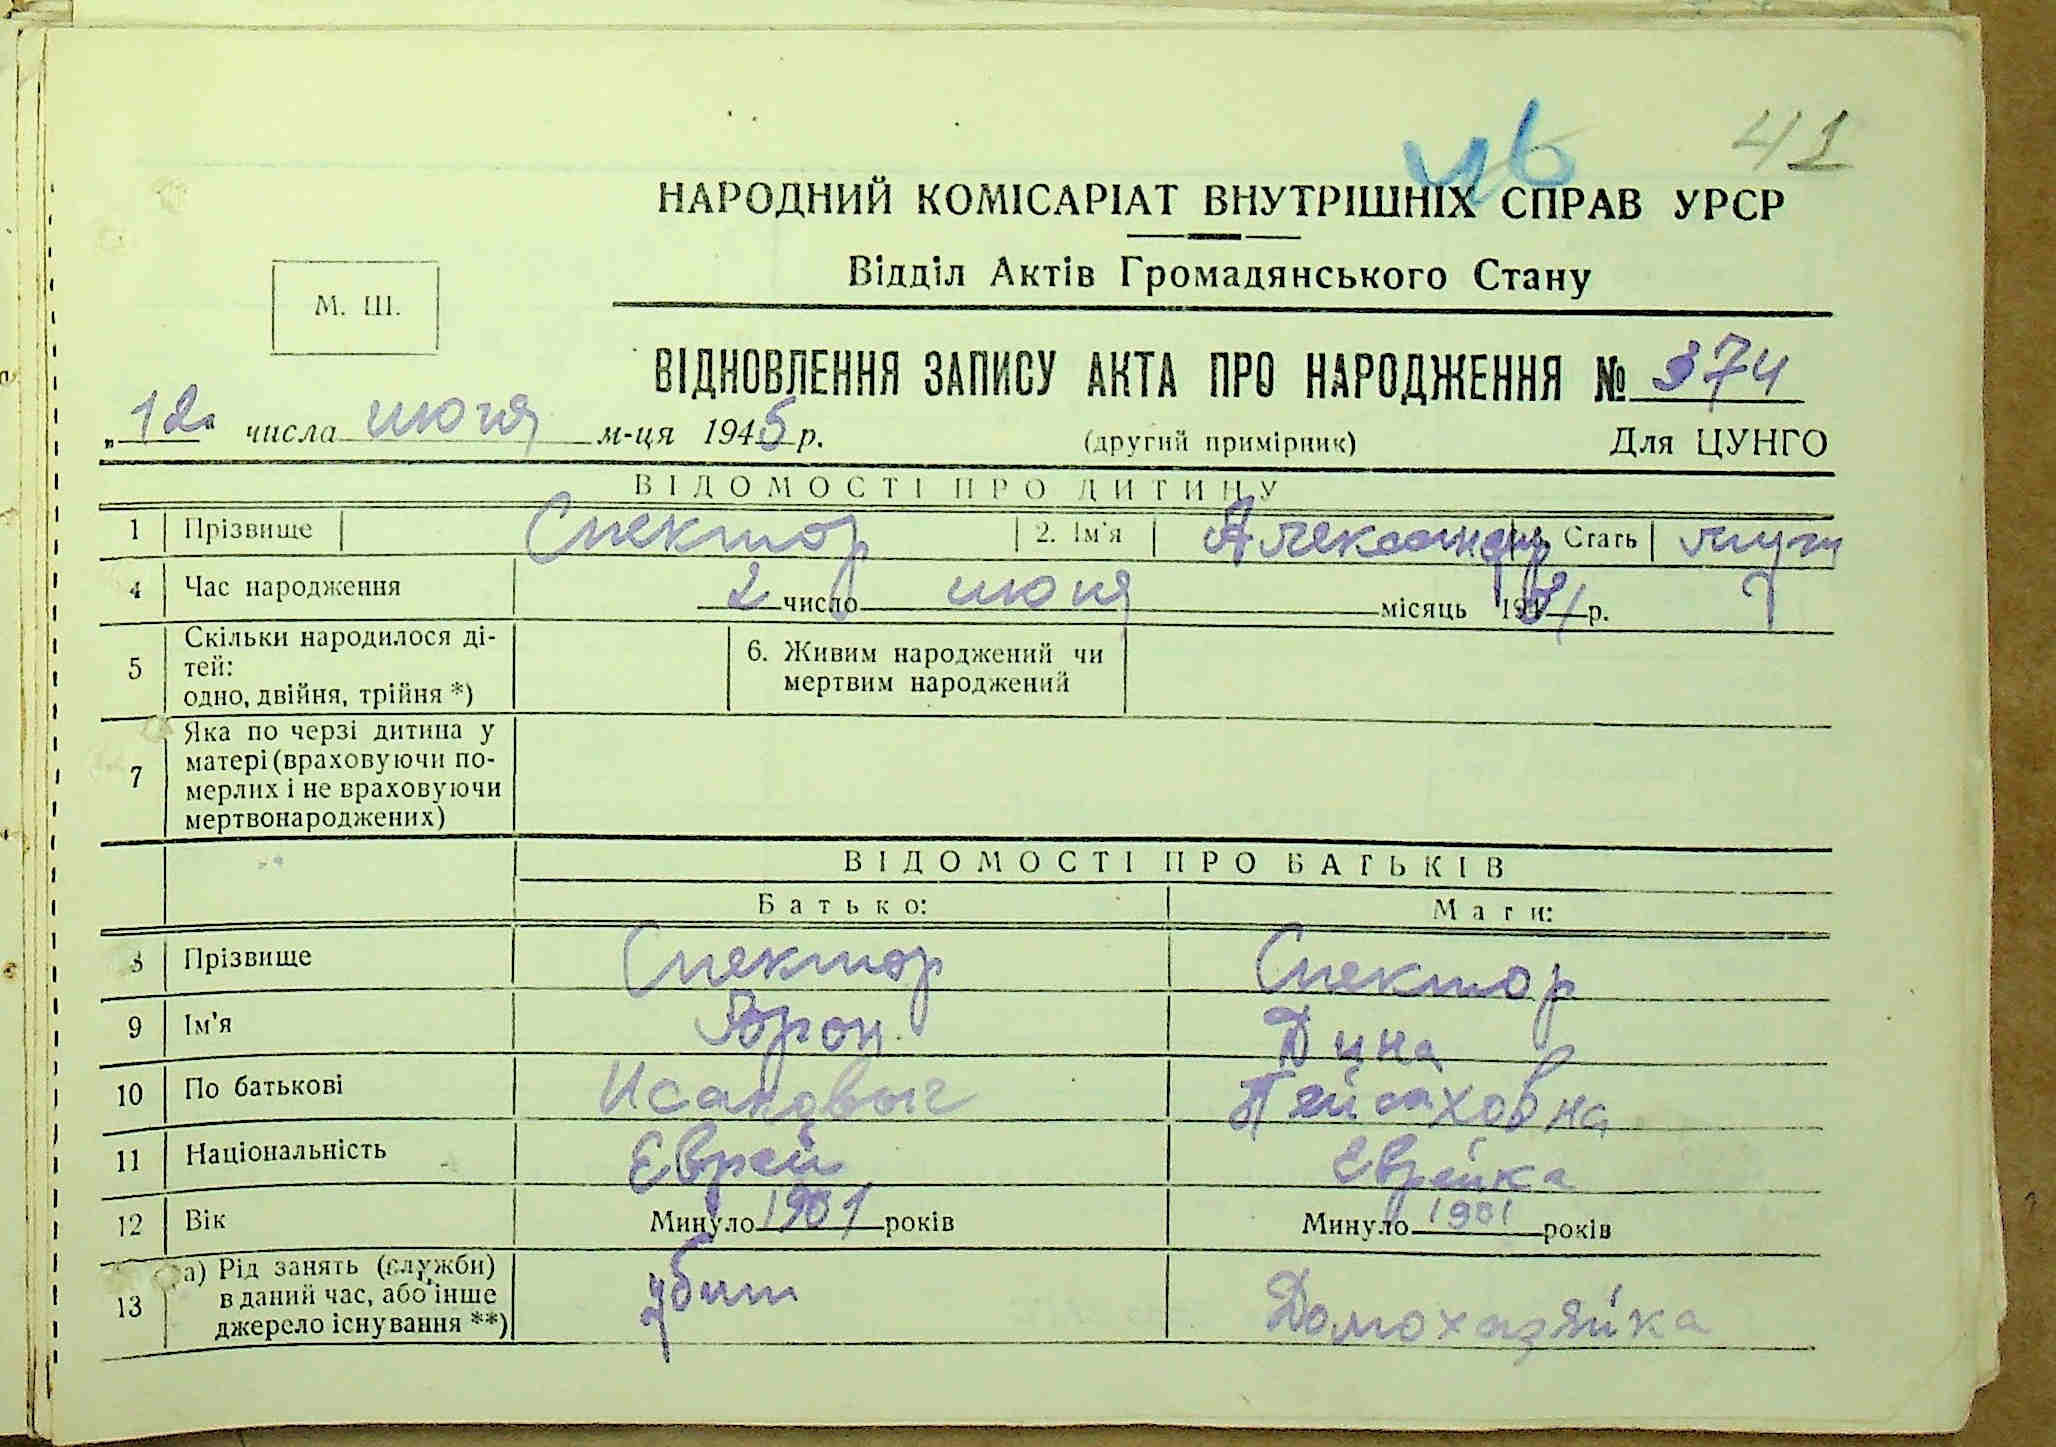 46 41
НАРОДНИЙ КОМІСАРІАТ ВНУТРІШНІХ СПРАВ УРСР
Відділ Актів Громадянського Стану
М. Ш.
ВІДНОВЛЕННЯ ЗАПИСУ АКТА ПРО НАРОДЖЕННЯ № 374
„12" числа июня м-ця 1945 р. (другий примірник) Для ЦУНГО
ВІДОМОСТІ ПРО ДИТИНУ
1 Прізвище Спектор 2. Ім'я Александр Стать муж
4 Час народження 2 число июня місяць р.
5 Скільки народилося ді-
тей:
одно, двійня, трійня *)
6. Живим народжений чи
мертвим народжений
7 Яка по черзі дитина у
матері (враховуючи по-
мерлих і не враховуючи
мертвонароджених)
ВІДОМОСТІ ПРО БАТЬКІВ
Батько: Мати:
8 Прізвище Спектор Спектор
9 Ім'я Арон Дина
10 По батькові Исакович Пейсаховна
11 Національність Еврей Еврейка
12 Вік Минуло 1901 років Минуло 1901 років
13 а) Рід занять (служби)
в даний час, або інше
джерело існування **)
убит Домохазяйка